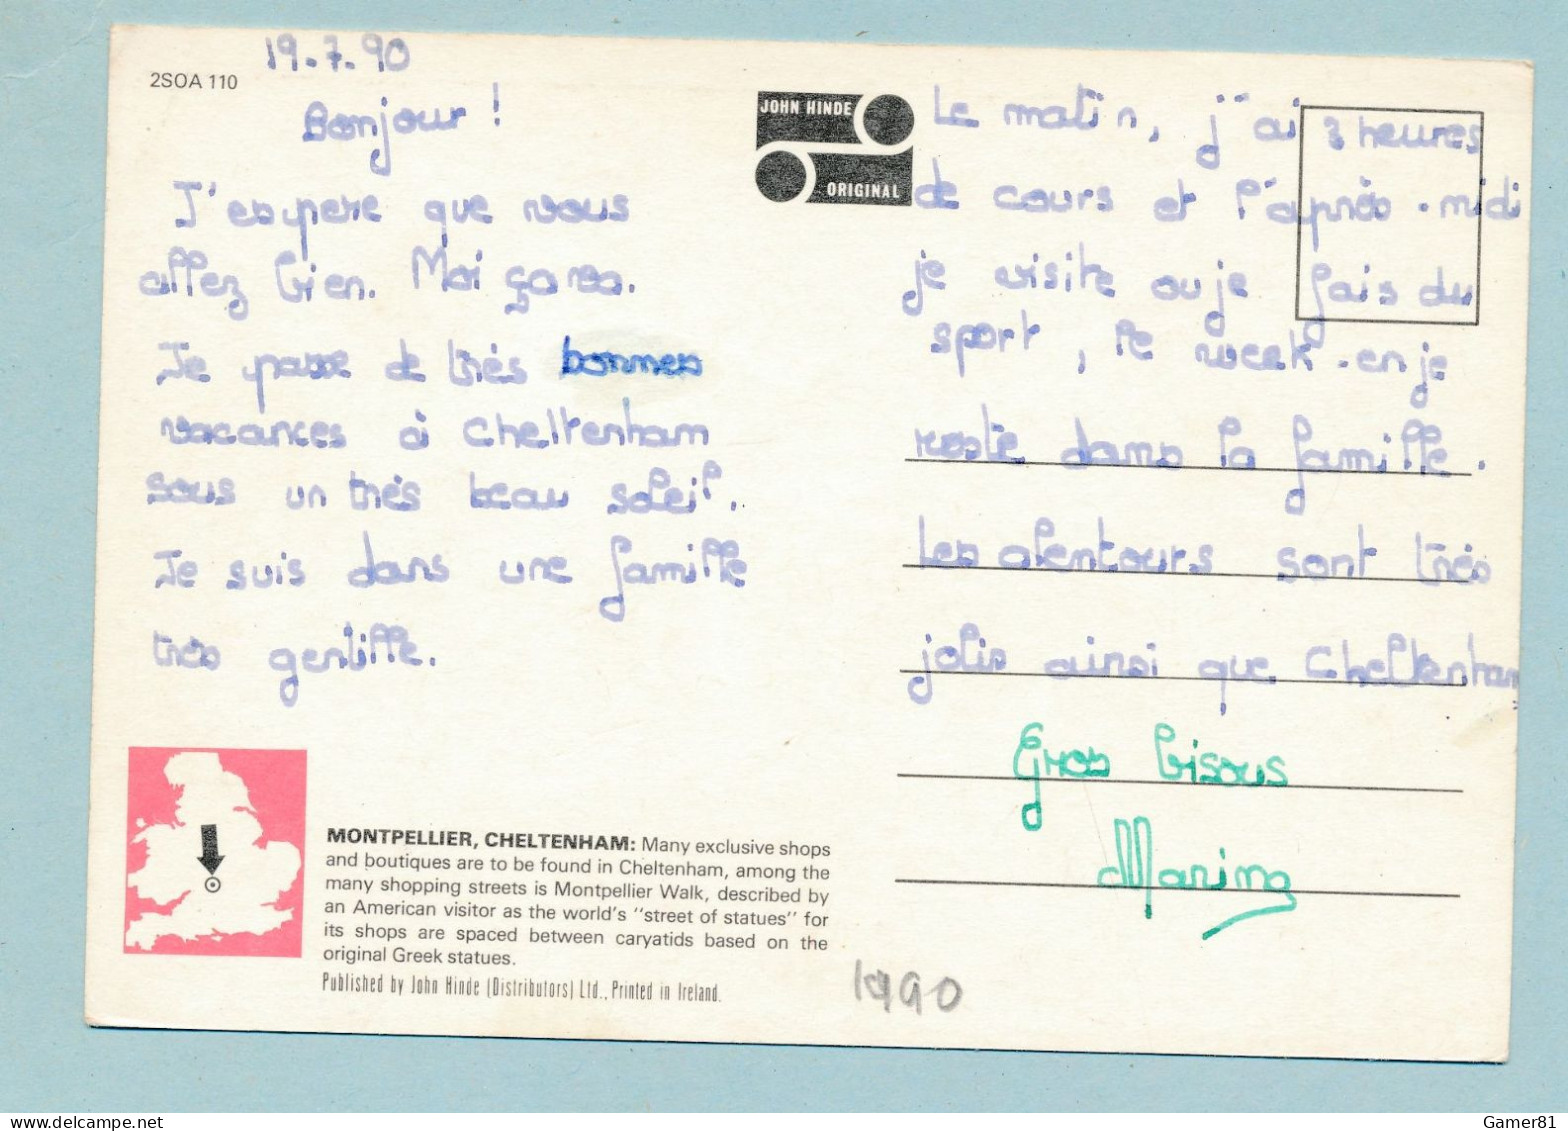 19.7.90
2SOA 110
Bonjour !
J'espere que vous
allez bien. Moi ça va.
Je passe de très bonnes
vacances à Cheltenham
sous un très beau soleil.
Je suis dans une famille
très gentille.
JOHN HINDE
ORIGINAL
Le matin, j'ai 3 heures
de cours et l'après-midi
je visite ou je fais du
sport, le week-en je
reste dans la famille.
Les alentours sont très
jolis ainsi que Cheltenham
Gros bisous
Marina
MONTPELLIER, CHELTENHAM: Many exclusive shops
and boutiques are to be found in Cheltenham, among the
many shopping streets is Montpellier Walk, described by
an American visitor as the world's "street of statues" for
its shops are spaced between caryatids based on the
original Greek statues.
Published by John Hinde (Distributors) Ltd., Printed in Ireland.
1990
Gamer81